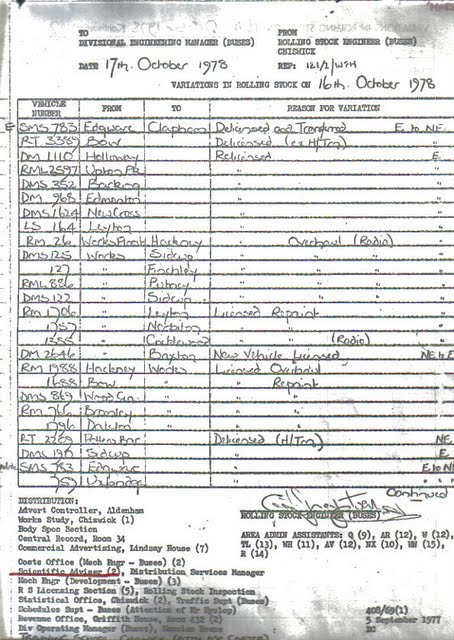 TO FROM
DIVISIONAL ENGINEERING MANAGER (BUSES) ROLLING STOCK ENGINEER (BUSES)
CHISWICK
DATE 17th. October 1978 REF: 121/1/WFH
VARIATIONS IN ROLLING STOCK ON 16th. October 1978
VEHICLE NUMBER FROM TO REASON FOR VARIATION
SMS 783 Edgware Clapham Delicensed and Transferred E to NE
RT 3389 Bow Delicensed (ex H/Trn) "
DM 1110 Holloway Relicensed E
RML 2597 Upton Pk "
DMS 352 Barking "
DM 968 Edmonton "
DMS 1624 New Cross "
LS 164 Leyton "
RM 26 Works Float Hackney Overhaul (Radio) "
DMS 125 Works Sidcup " "
127 " Finchley " "
RML 886 " Putney " "
DMS 122 " Sidcup " "
RM 1706 " Leyton Licensed Repaint "
1757 " Norbiton " "
1385 " Cricklewood " (Radio) "
DM 2646 Brixton New Vehicle Licensed NE to E
RM 1988 Hackney Works Licensed Overhaul
1688 Bow " " Repaint
DMS 869 Wood Grn " "
RM 766 Bromley " "
1796 Dalston " "
RT 2269 Potters Bar Delicensed (H/Trn) NE
DMS 191 Sidcup " E
SMS 783 Edgware " E to NE
Uxbridge " "
Continued
DISTRIBUTION:
Advert Controller, Aldenham
Works Study, Chiswick (1)
Body Spec Section
Central Record, Room 34
Commercial Advertising, Lindsay House (7)
ROLLING STOCK ENGINEER (BUSES)
AREA ADMIN ASSISTANTS: Q (9), AR (12), W (12),
TL (13), WH (11), AV (12), NX (10), HN (15),
R (14)
Costs Office (Mech Engr - Buses) (2)
Scientific Adviser (2), Distribution Services Manager
Mech Engr (Development - Buses) (3)
R S Licensing Section (5), Rolling Stock Inspection
Statistical Office, Chiswick (2), Traffic Supt (Buses)
Schedules Supt - Buses (Attention of Mr Hyslop)
Revenue Office, Griffith House, Room 432 (2)
Div Operating Manager (Buses)
408/69(1)
5 September 1977